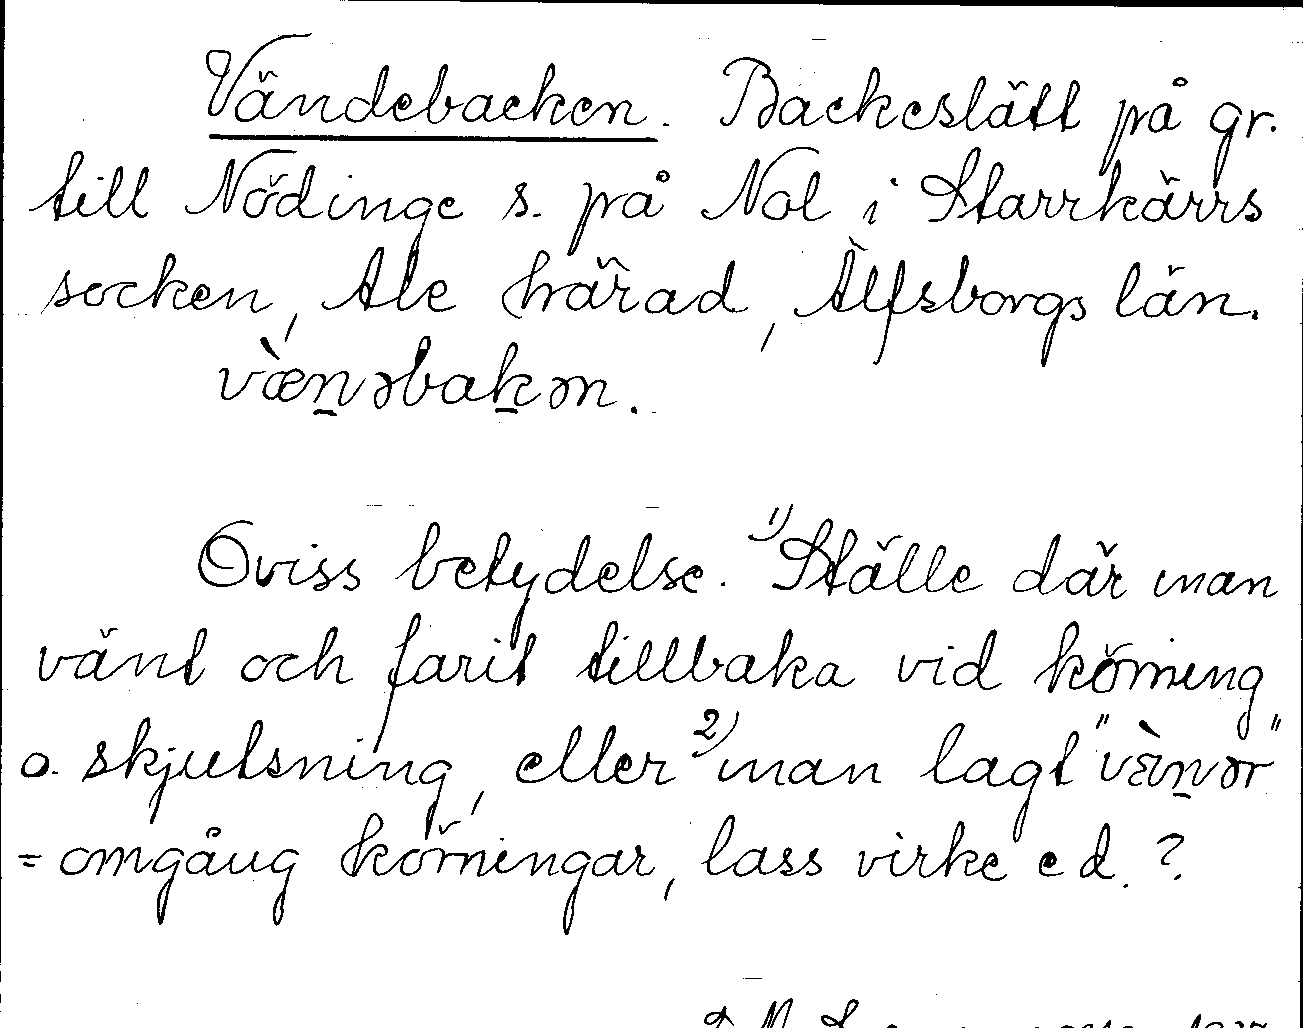 Vändebacken. Backeslätt på gr.
till Nödinge s. på Nol i Starrkärrs
socken, Ale härad, Älfsborgs län.
væ̀n̠əbak̠ən.
Oviss betydelse. 1) Ställe där man
vänt och farit tillbaka vid körning
o. skjutsning, eller 2) man lagt "vɛ̀n̠ər"
= omgång körningar, lass virke e d. ?